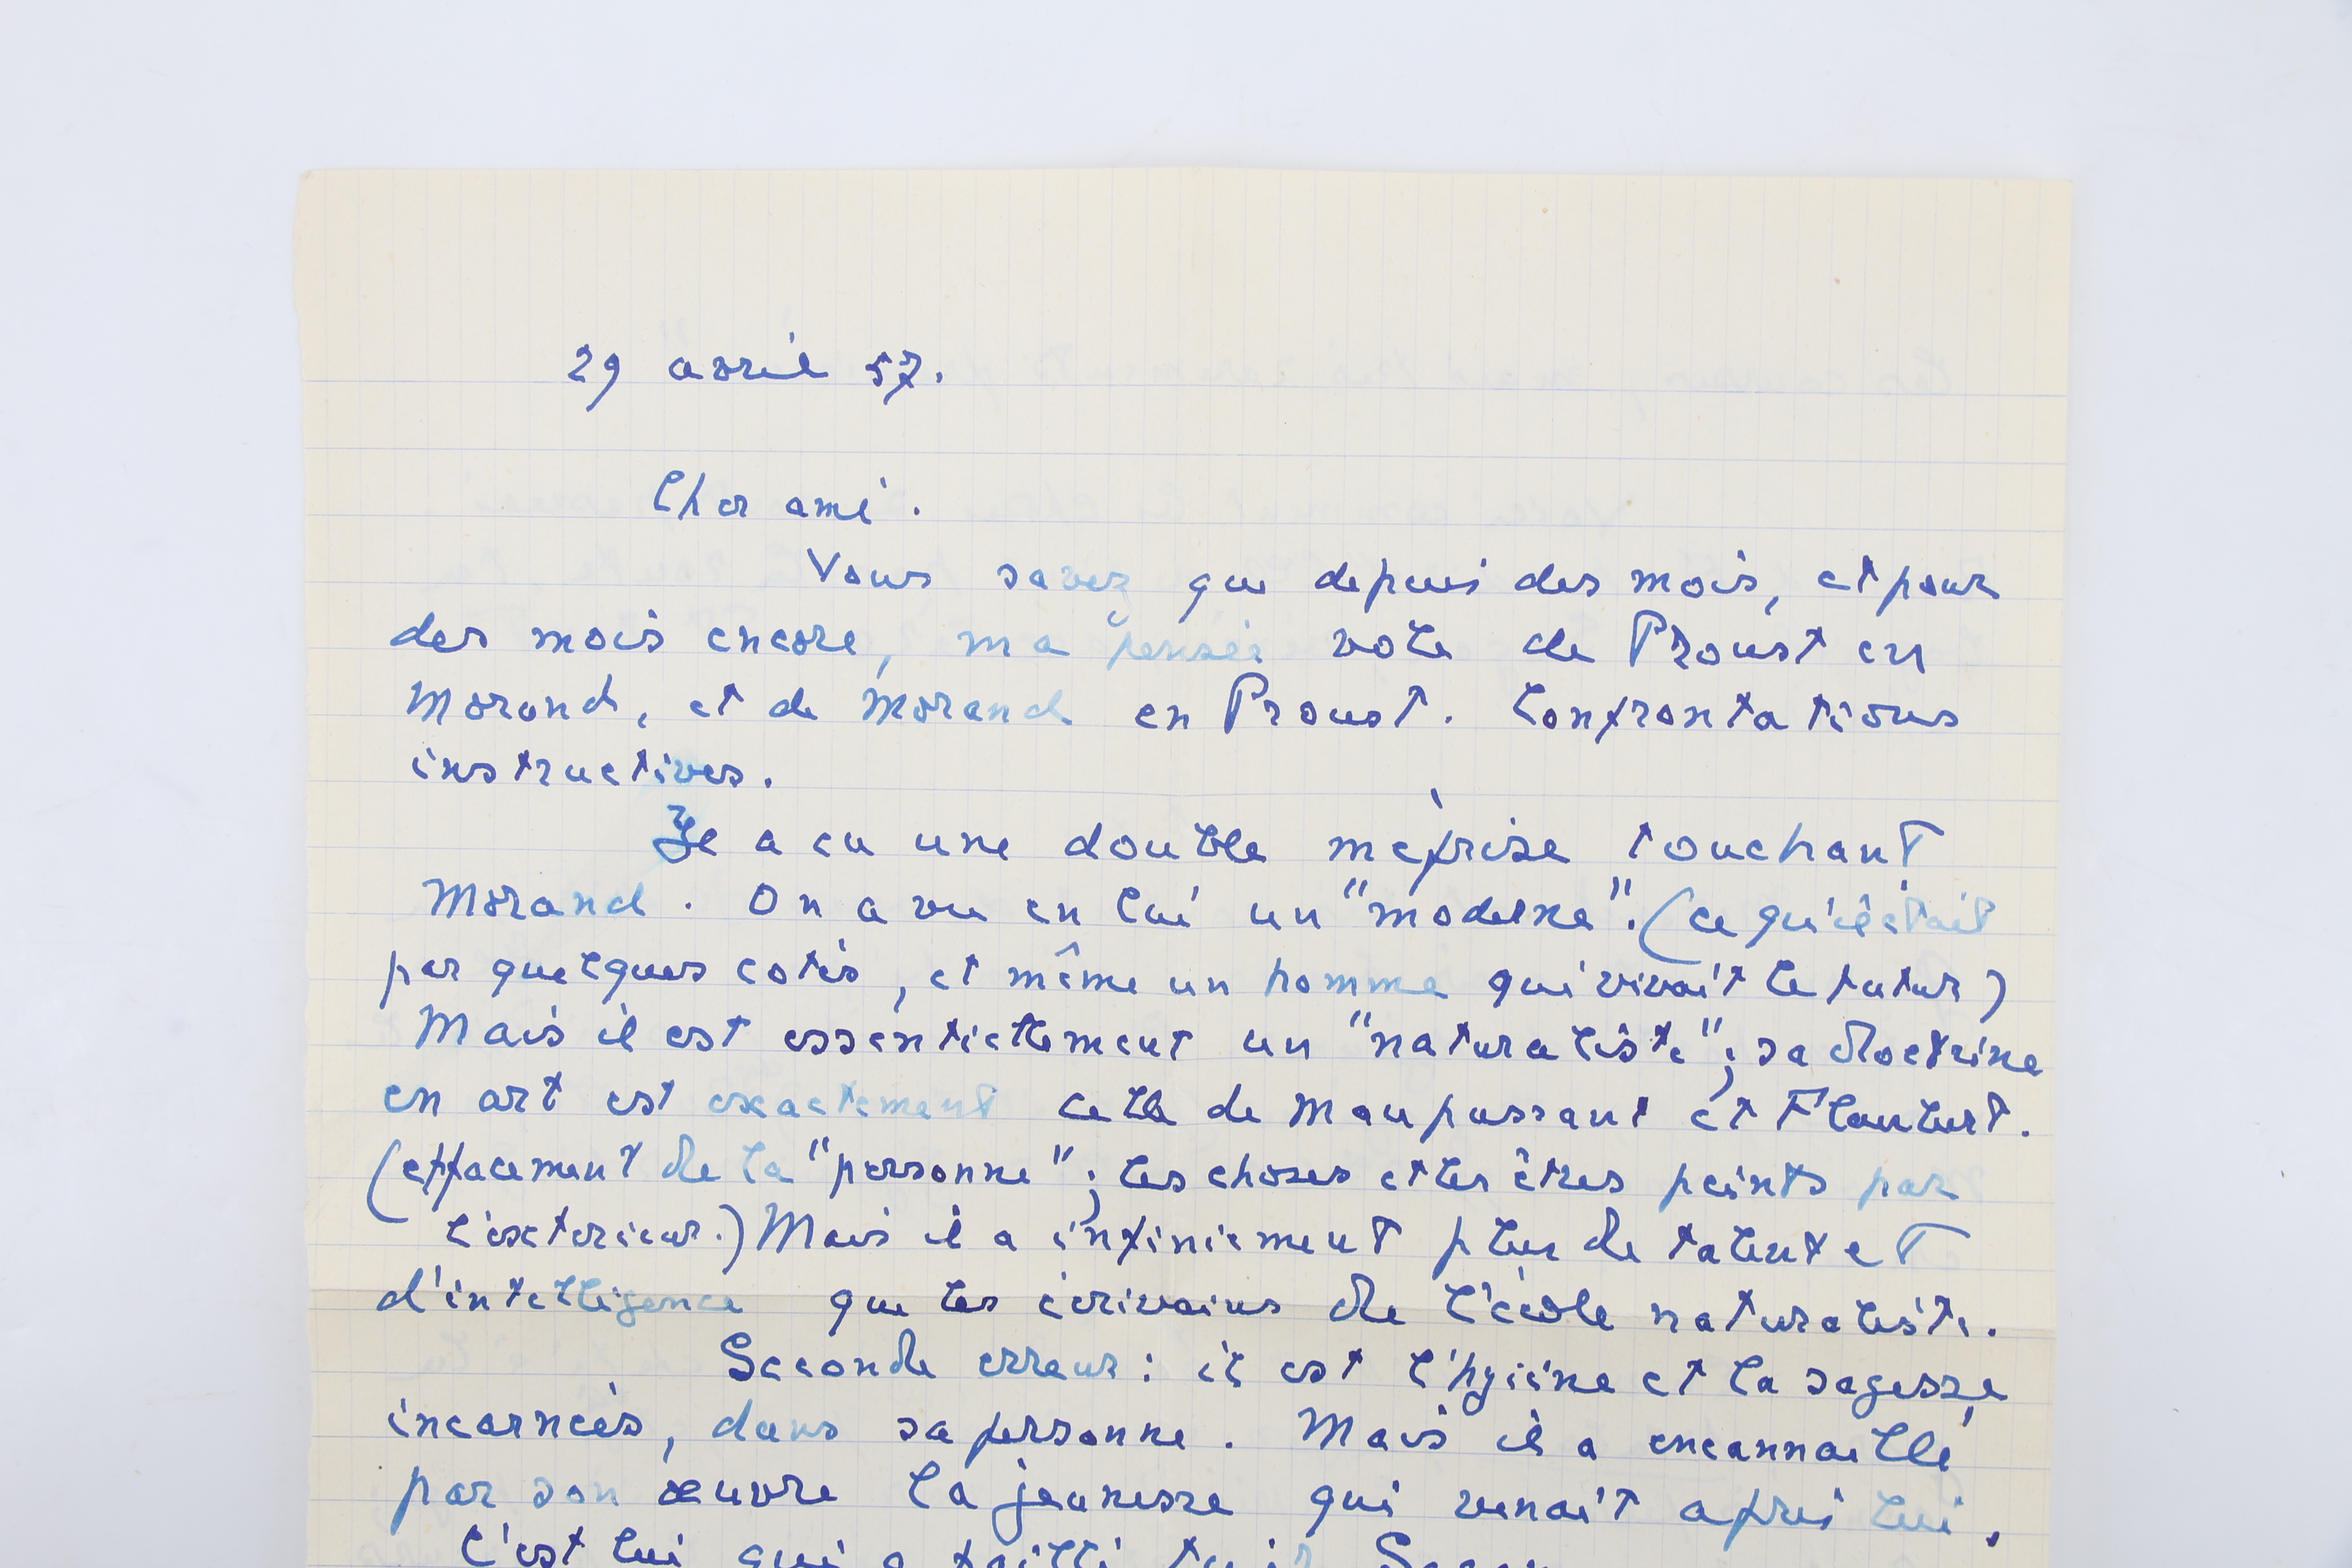 29 avril 57.
Cher ami.
Vous savez que depuis des mois, et pour
des mois encore, ma pensée vole de Proust en
Morand, et de Morand en Proust. Confrontations
instructives.
Il a eu une double méprise touchant
Morand. On a vu en lui un "moderne". (ce qu'il était
par quelques cotés, et même un homme qui vivait le futur)
Mais il est essentiellement un "naturaliste"; sa doctrine
en art est exactement celle de Maupassant et Flaubert.
(effacement de la "personne"; les choses et les êtres peints par
l'exterieur.) Mais il a infiniement plus de talent et
d'intelligence que les écrivains de l'école naturaliste.
Seconde erreur: il est l'hygiène et la sagesse
incarnées, dans sa personne. Mais il a encannaillé
par son œuvre la jeunesse qui venait après lui.
C'est lui qui a